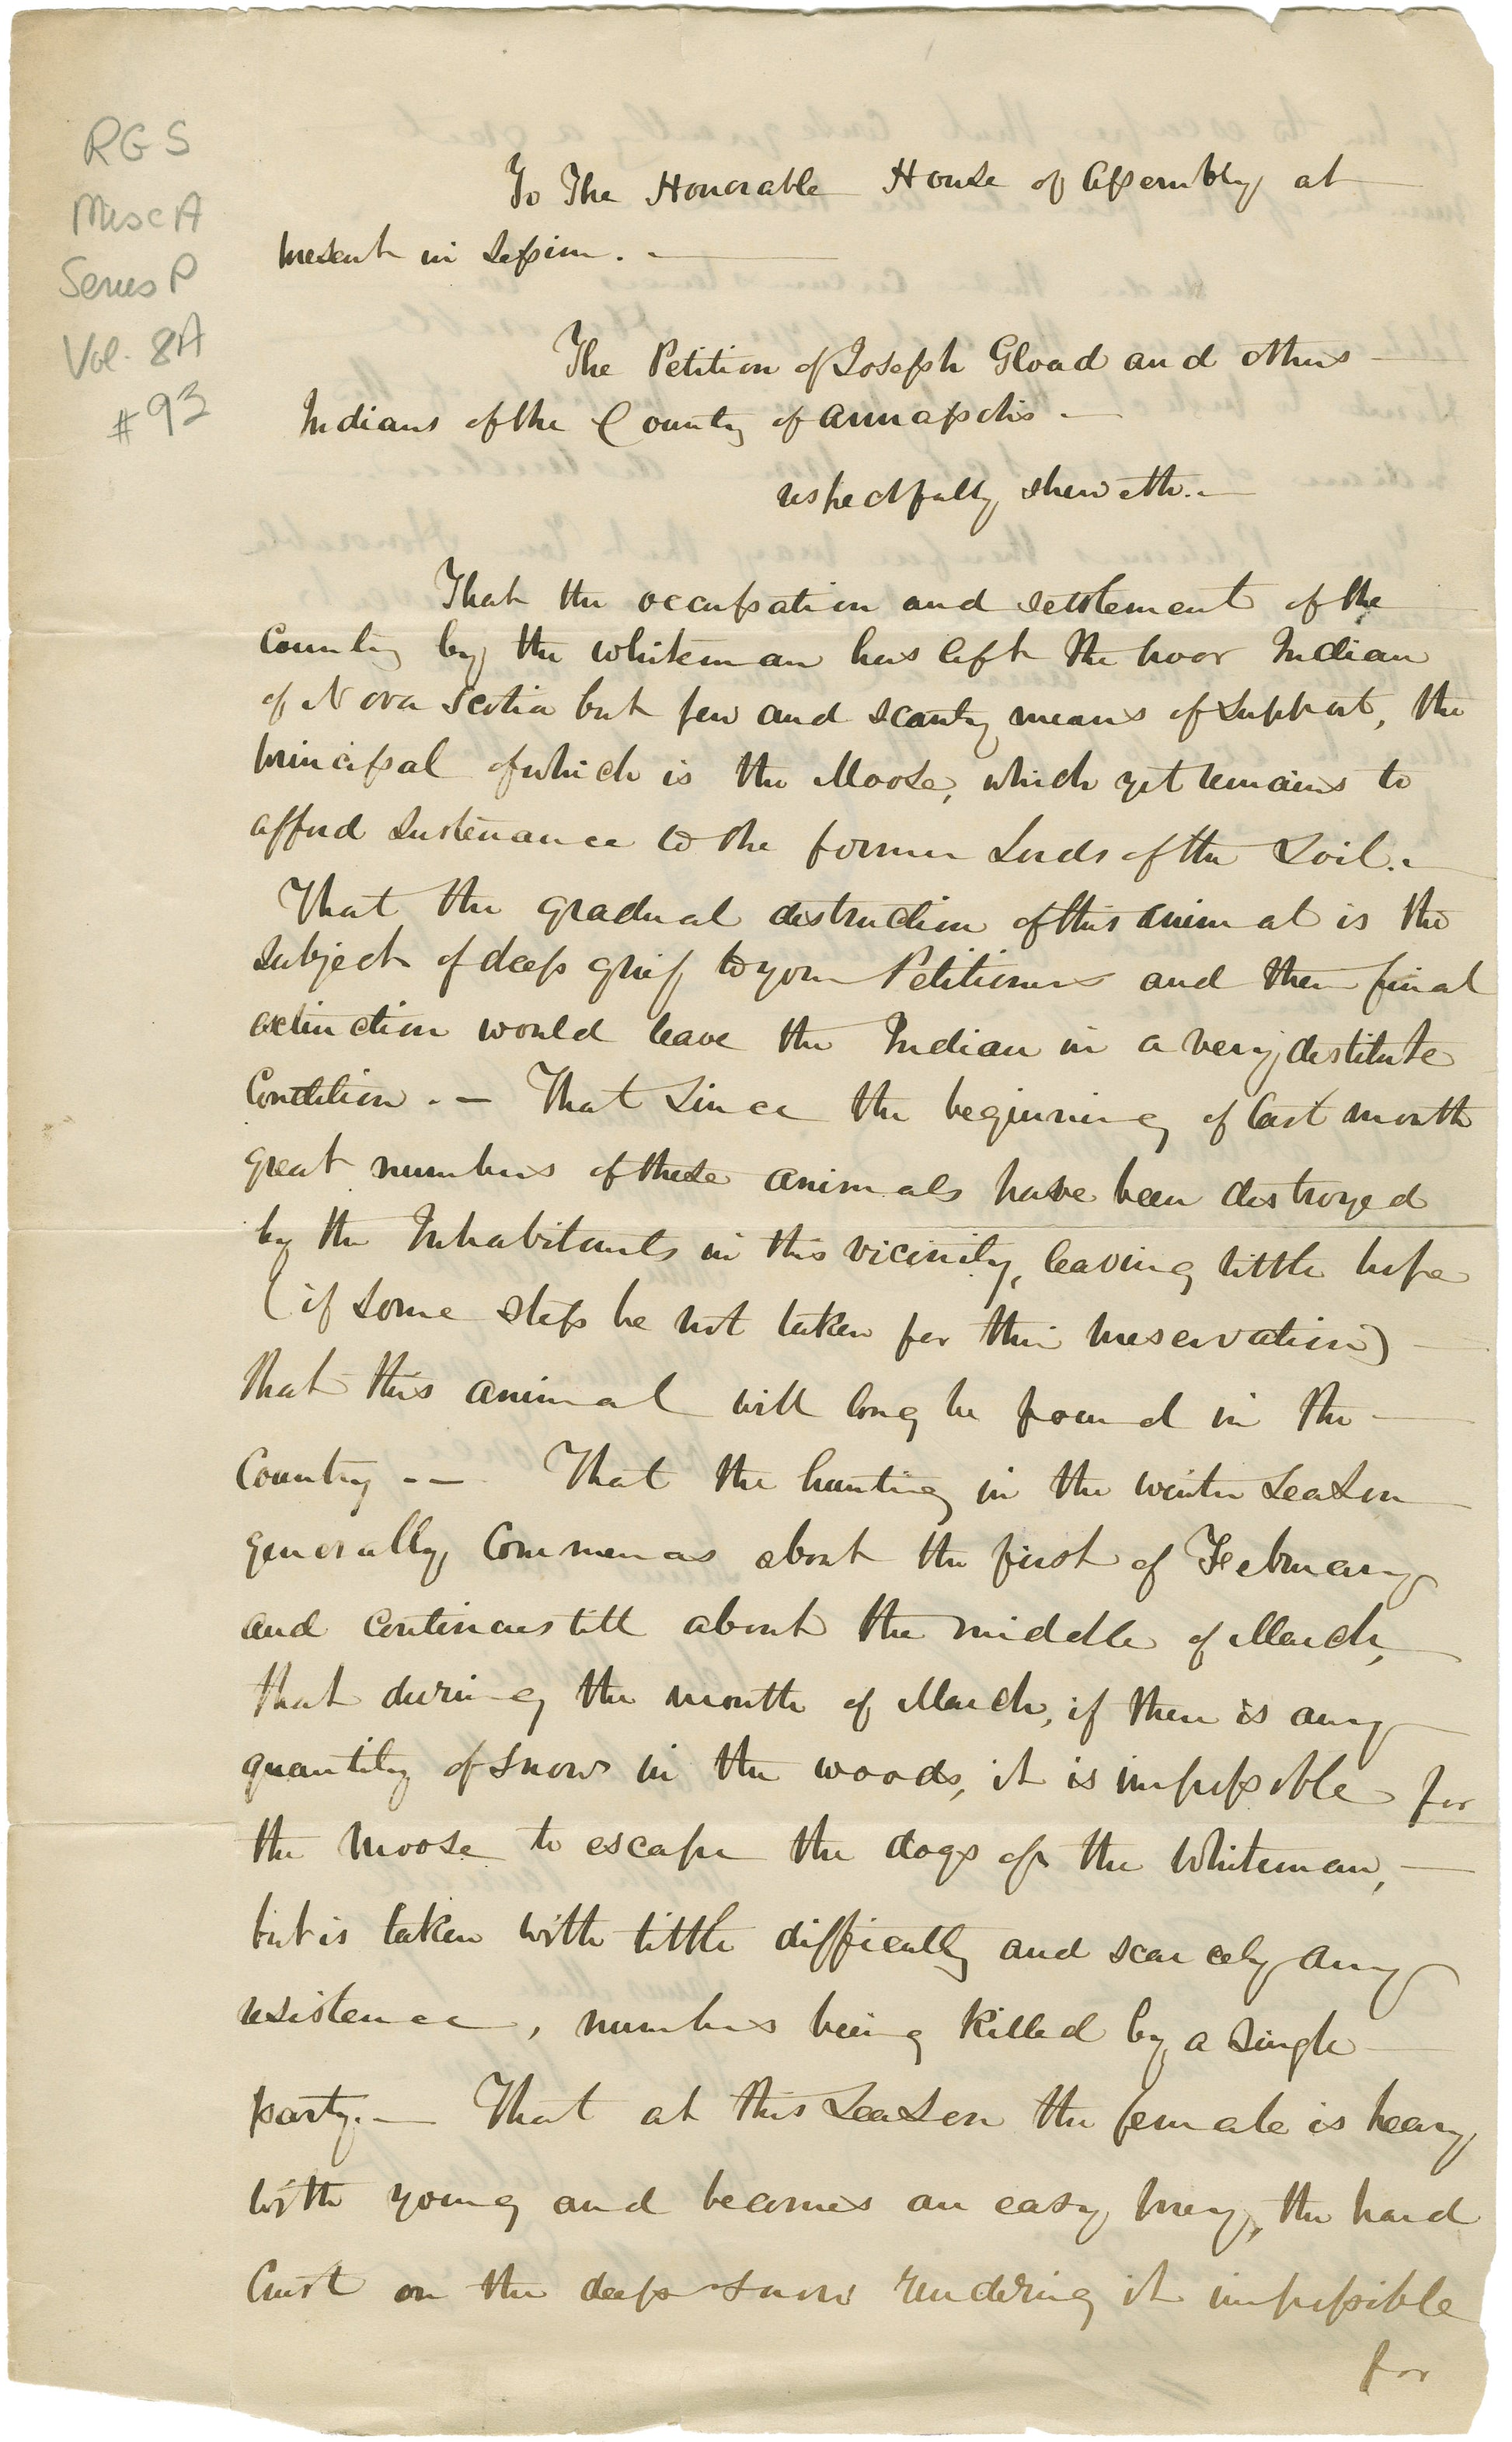 RG 5
Misc A
Series P
Vol. 8A
#93
To The Honorable House of Assembly at
present in Session. -
The Petition of Joseph Gload and others
Indians of the County of Annapolis -
respectfully sheweth. -
That the occupation and settlement of the
Country by the whiteman has left the poor Indian
of Nova Scotia but few and scanty means of support, the
principal of which is the Moose, which yet remains to
afford sustenance to the former Lords of the Soil. -
That the gradual destruction of this animal is the
subject of deep grief to your Petitioners and their final
extinction would leave the Indian in a very destitute
Condition. - That since the beginning of last month
great numbers of these animals have been destroyed
by the Inhabitants in this vicinity, leaving little hope
(if some step be not taken for their preservation)
that this animal will long be found in the
Country -- That the hunting in the winter season
generally Commences about the first of February
and continues till about the middle of March,
that during the month of March, if there is any
quantity of snow in the woods, it is impossible for
the moose to escape the dogs of the Whiteman,
but is taken with little difficulty and scarcely any
resistence, numbers being killed by a single
party. - That at this season the female is heavy
with young and becomes an easy prey, the hard
Crust on the deep snow rendering it impossible
for